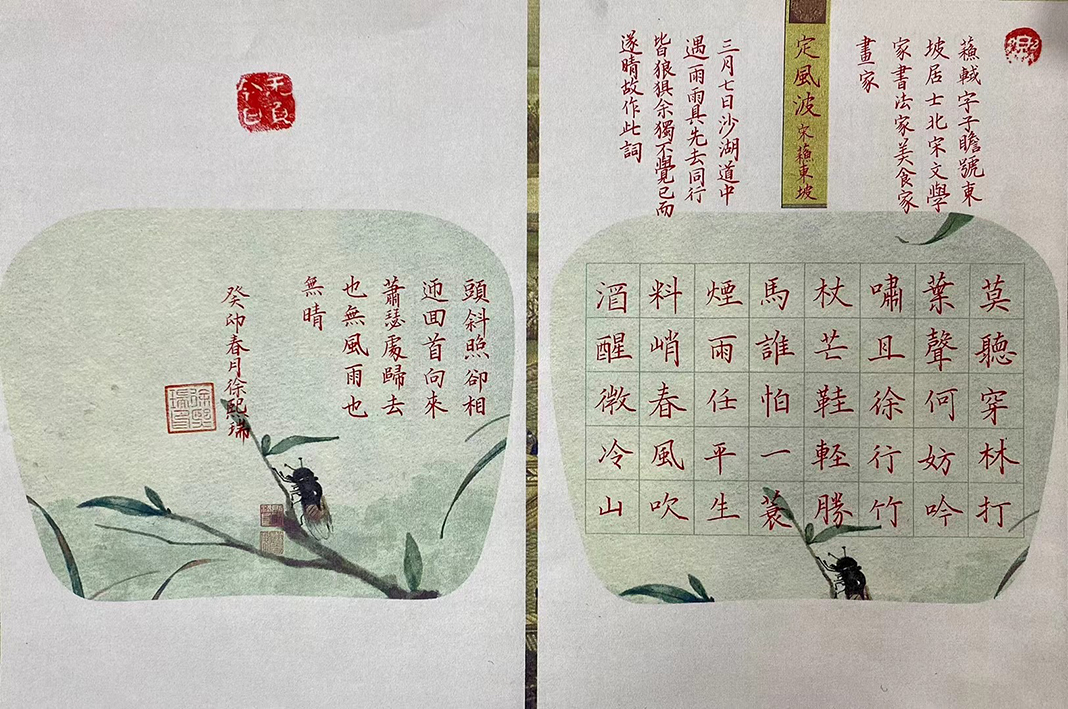 蘇軾字子瞻號東
坡居士北宋文學
家書法家美食家
畫家
定風波 宋 蘇東坡
三月七日沙湖道中
遇雨雨具先去同行
皆狼狽余獨不覺已而
遂晴故作此詞
莫聽穿林打
葉聲何妨吟
嘯且徐行竹
杖芒鞋軽勝
馬誰怕一蓑
煙雨任平生
料峭春風吹
酒醒微冷山
頭斜照卻相
迎回首向來
蕭瑟處歸去
也無風雨也
無晴
癸卯春月徐熙瑞
无負
今日
徐熙
瑞印